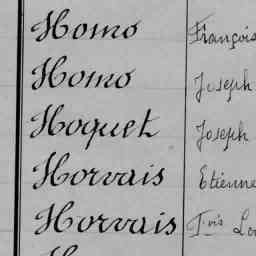 Homo François
Homo Joseph
Hoquet Joseph
Horvais Etienne
Horvais Fois